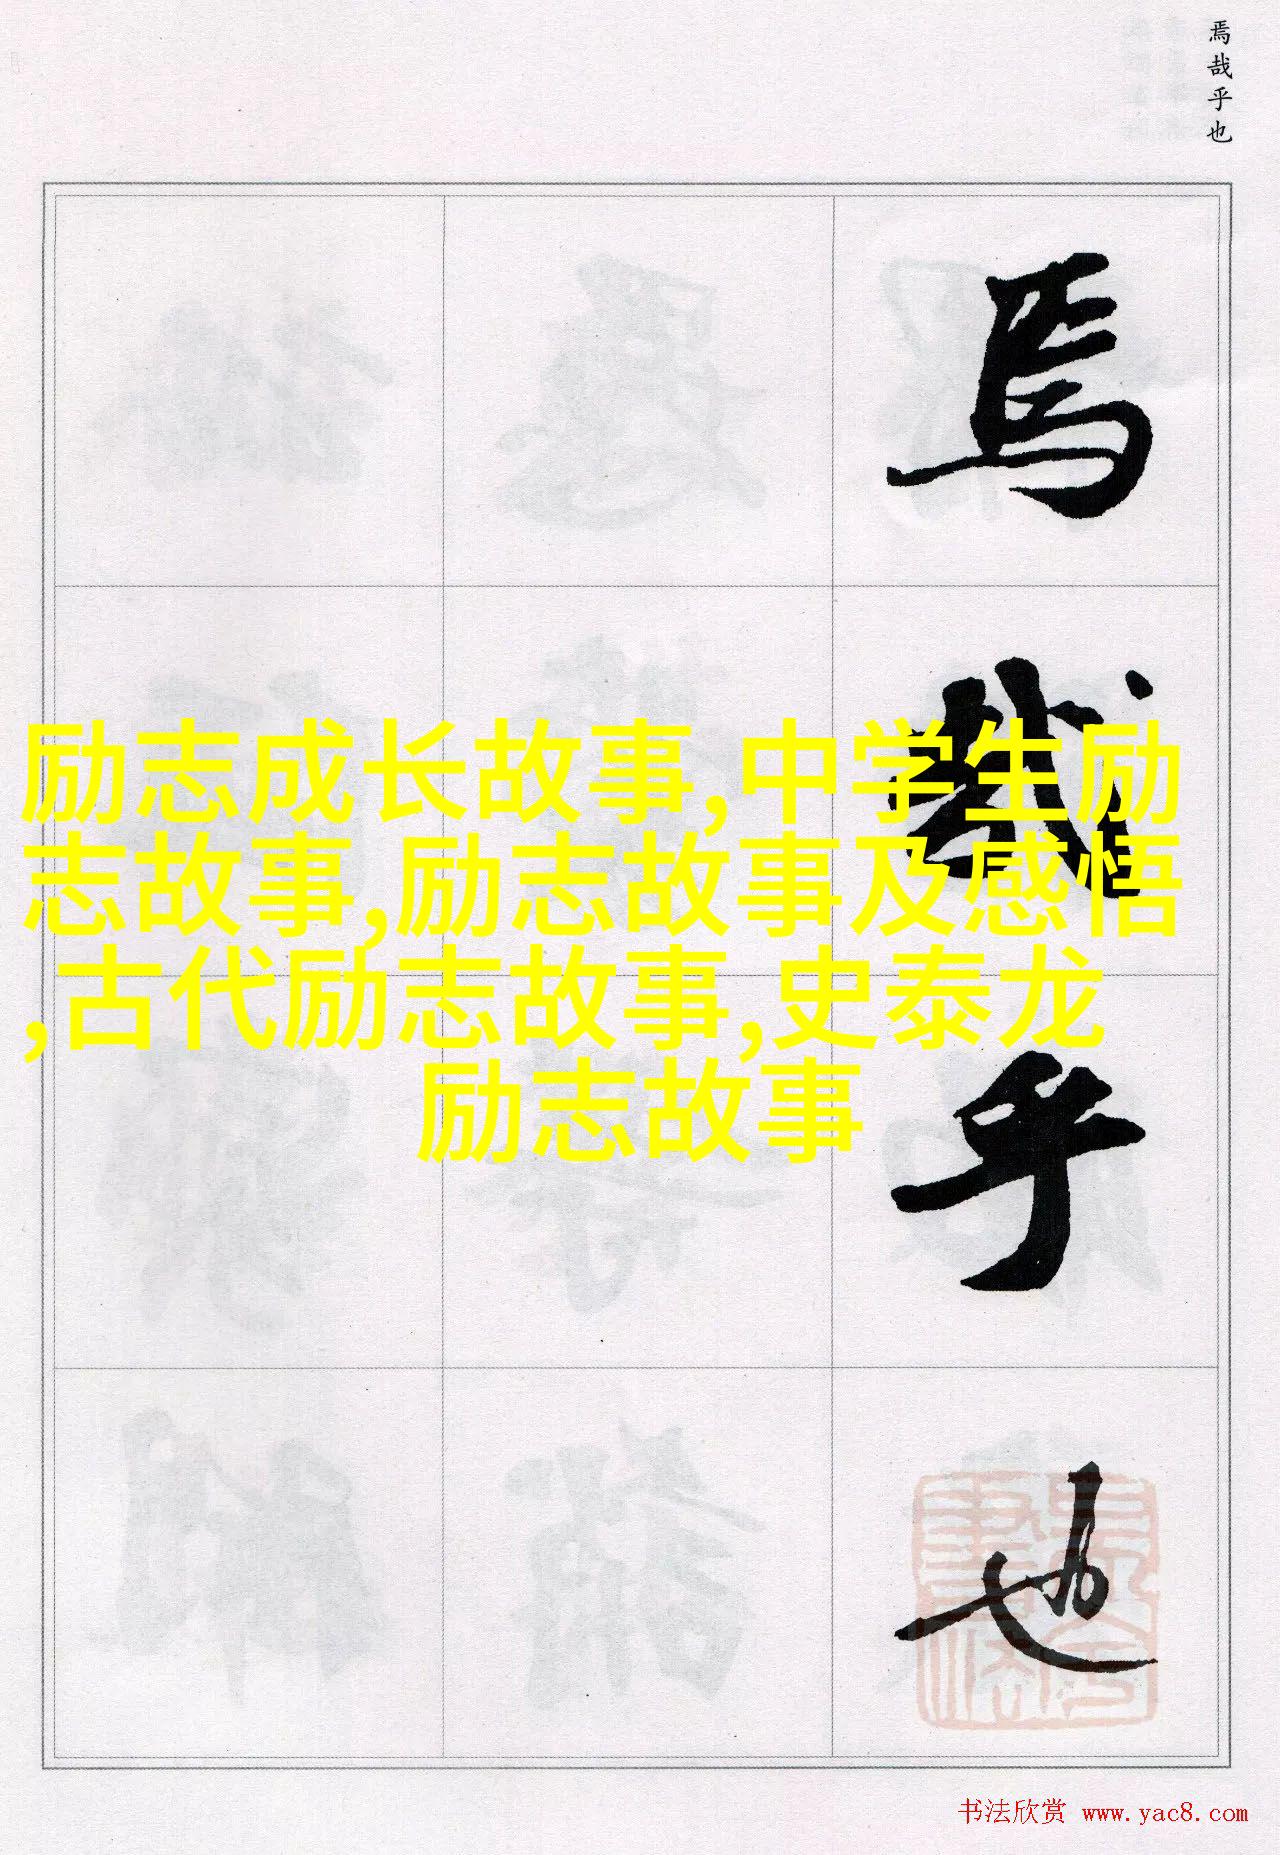 焉哉乎也
焉
哉
乎
也
励志成长故事,中学生励
志故事,励志故事及感悟
,古代励志故事,史泰龙
励志故事
书法欣赏 www.yac8.com